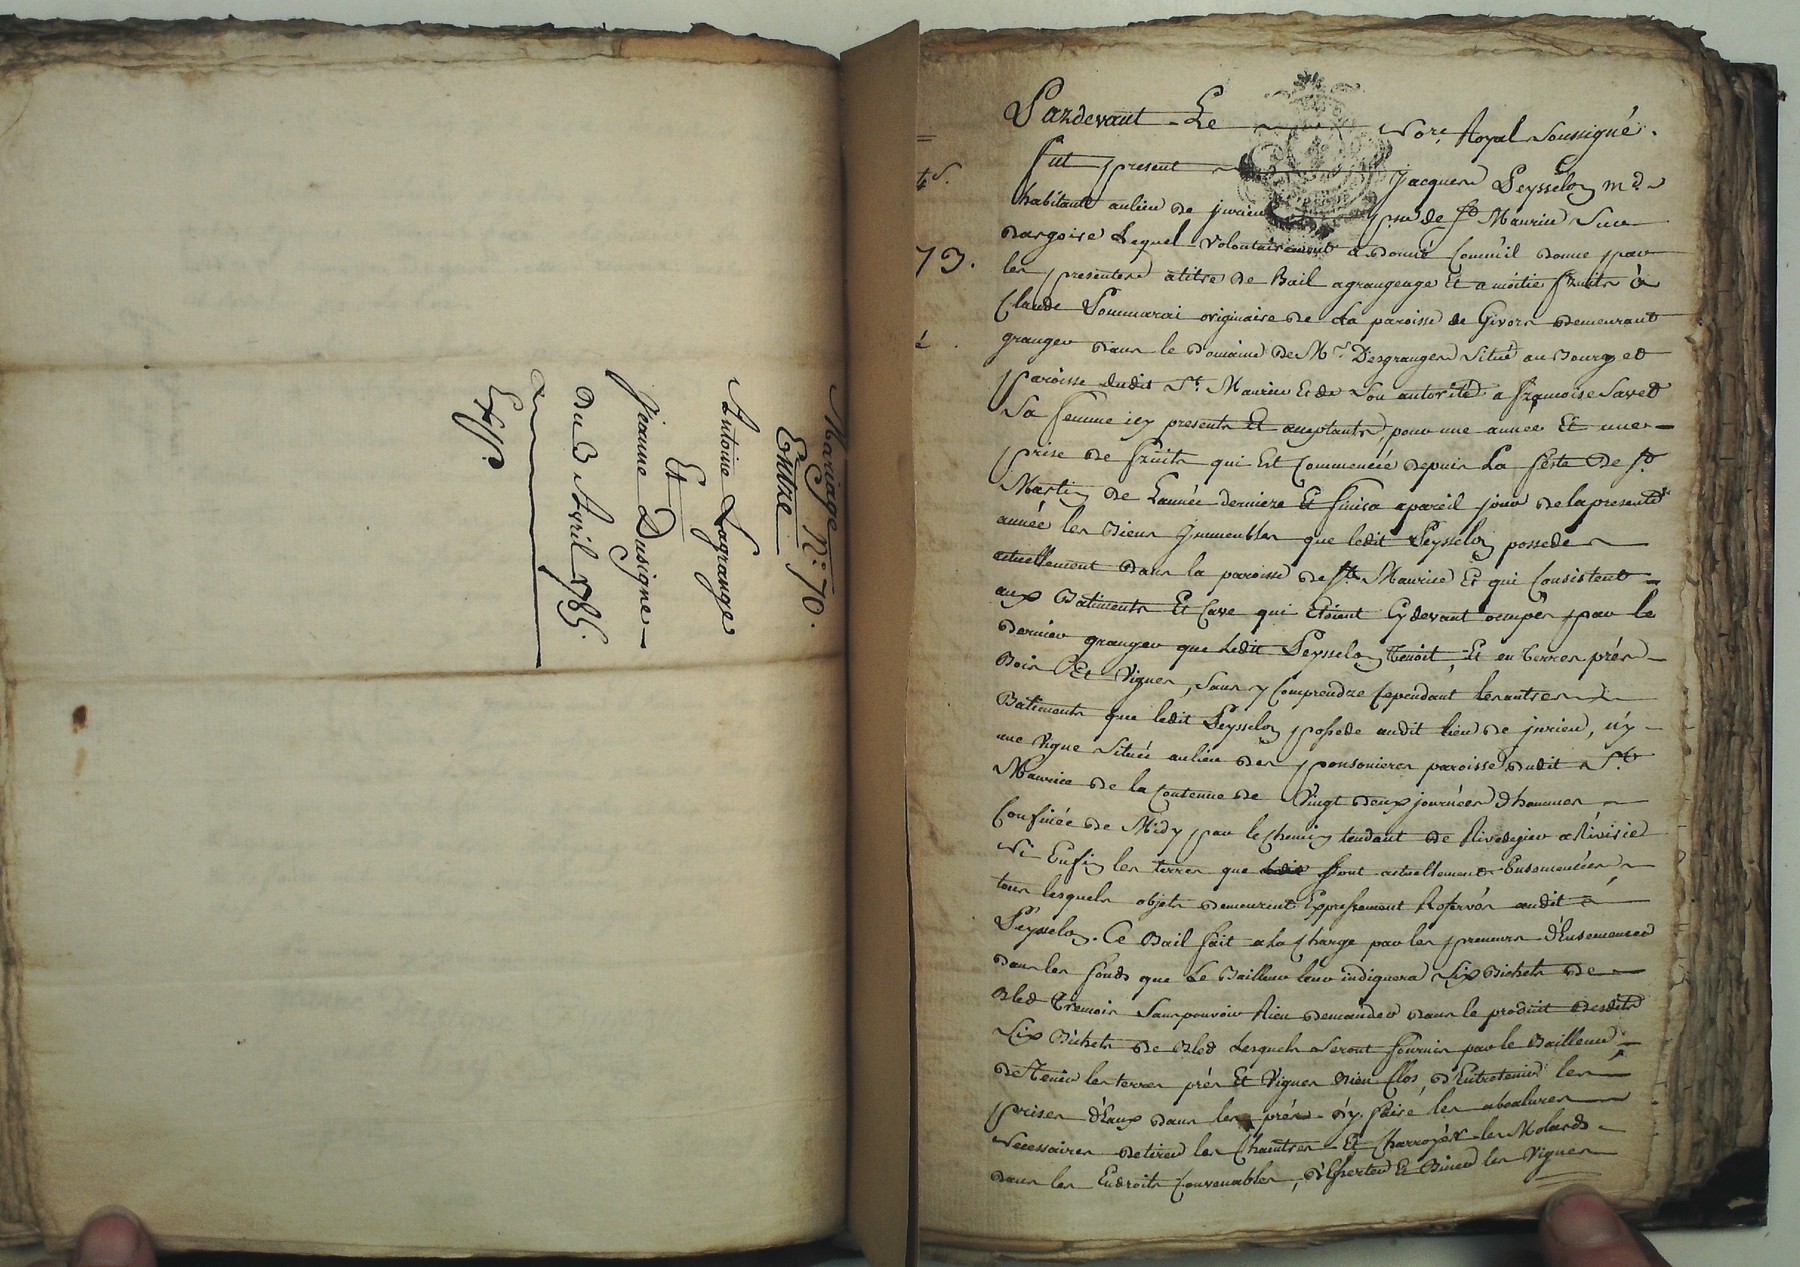 Mariage N.° 70.
Entre
Antoine Lagrange
Et
Jeanne Dusigne
Du 3 Avril 1785.
Exp.
73.
Pardevant Le Nore. Royal Soussigné.
fut present Jacques Peysselon md.
habitant au lieu de jurieu psse de St Maurice Sur
dargoire Lequel volontairement a donné Comm'il donne par
les presentes a titre de Bail a grangeage Et a moitié fruits à
Claude Pommarai originaire de La paroisse de Givors demeurant
granger dans le domaine de Mr. Desgranges Situé au Bourg et
paroisse dudit St. Maurice Et de Son autorité a françoise Savet
Sa femme icy presents Et acceptants, pour une année Et une
prise de fruits qui Est Commencée depuis La feste de St
Martin de L'année derniere Et finira a pareil jour de la presente
année les Biens Immeubles que ledit Peysselon possede
actuellement dans la paroisse de St Maurice Et qui Consistent
aux Batiments Et Cave qui Etoient Cydevant occupés par le
dernier granger que Ledit Peysselon tenoit, Et en terres prés
Bois Et Vignes, Sans y Comprendre Cependant les autres
Batiments que ledit Peysselon possede audit Lieu de jurieu, n'y
une Vigne Située au lieu des ponsonieres paroisse dudit St
Maurice de la Contenue de Vingt deux journées d'hommes
Confinée de Midy par le Chemin tendant de Rivedegier a
Ni Enfin les terres que sont actuellement Ensemencées
tous lesquels objets demeurent Expressement Reservés audit
Peysselon. Ce Bail fait a la Charge par les preneurs d'Ensemencer
dans les fonds que Le Bailleur leur indiquera Six Bichets de
Bled Tremois Sans pouvoir Rien demander dans le produit desdits
Six Bichets de Bled Lesquels Seront fournis par le Bailleur
de Tenir les terres prés Et Vignes Bien Clos, d'Entretenir les
prises d'Eaux dans les prés d'y faire les abealures
Necessaires de tirer les Chaintres Et Charroyer les Molards
dans les Endroits Convenables, d'Esserter Et Biner les Vignes